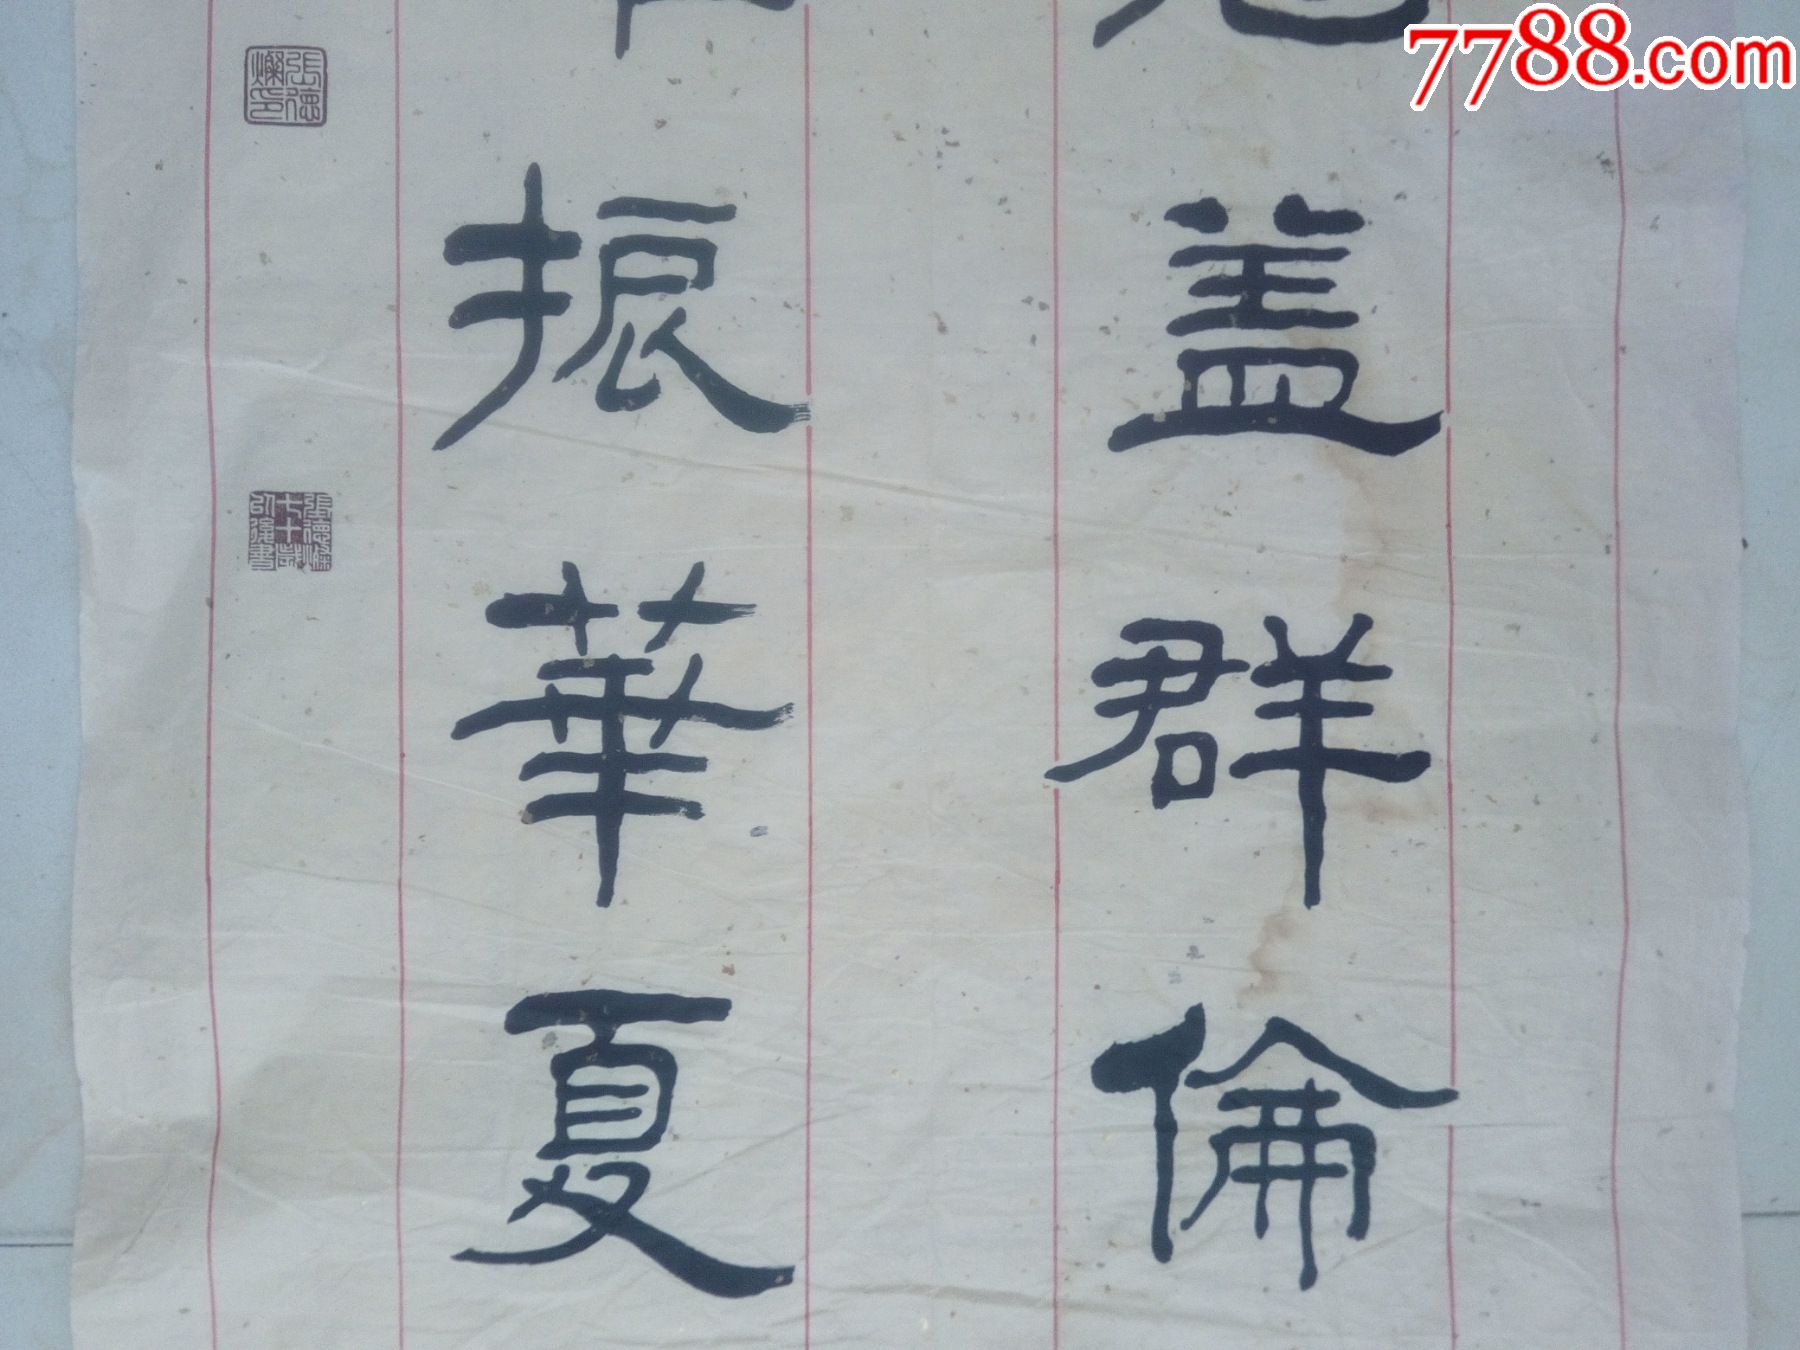 7788.com
盖群倫
振華夏
張德爤印
張德爤
七十歲
以後書